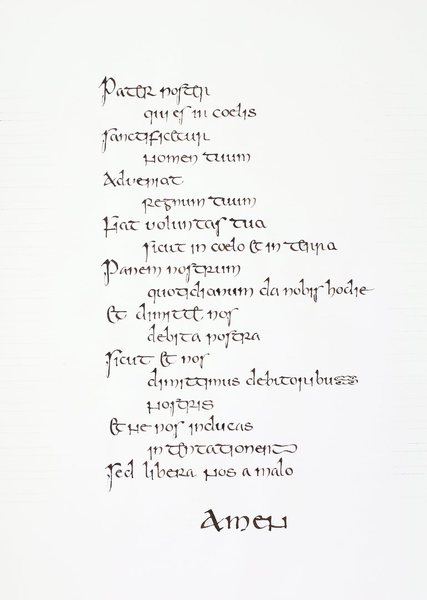 Pater noster
qui es in coelis
sanctificetur
nomen tuum
Adveniat
regnum tuum
Fiat voluntas tua
sicut in coelo et in terra
Panem nostrum
quotidianum da nobis hodie
Et dimitte nos
debita nostra
sicut et nos
dimittimus debitoribus
nostris
et ne nos inducas
in tentationem
Sed libera nos a malo
Amen